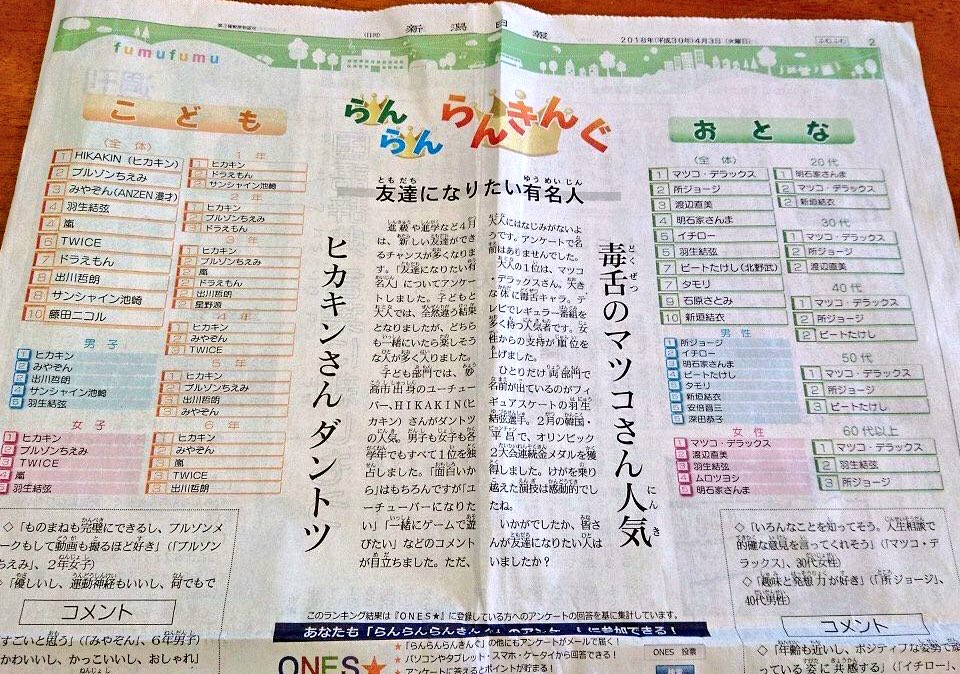 新潟日報
2018年(平成30年)4月3日(火曜日)
ふむふむ
2
fumufumu
こども
(全体)
1 HIKAKIN(ヒカキン)
2 ブルゾンちえみ
3 みやぞん(ANZEN漫才)
4 羽生結弦
4 嵐
6 TWICE
7 ドラえもん
8 出川哲朗
8 サンシャイン池崎
10 藤田ニコル
男子
1 ヒカキン
2 みやぞん
3 出川哲朗
4 サンシャイン池崎
5 羽生結弦
女子
1 ヒカキン
2 ブルゾンちえみ
3 TWICE
4 嵐
5 羽生結弦
1年
1 ヒカキン
2 ドラえもん
3 サンシャイン池崎
2年
1 ヒカキン
2 ブルゾンちえみ
3 ドラえもん
3年
1 ヒカキン
2 ブルゾンちえみ
嵐
ドラえもん
出川哲朗
星野源
4年
1 ヒカキン
2 みやぞん
3 TWICE
5年
1 ヒカキン
2 ブルゾンちえみ
3 出川哲朗
3 みやぞん
6年
1 ヒカキン
2 みやぞん
3 嵐
3 TWICE
3 出川哲朗
らんらんらんきんぐ
友達になりたい有名人
毒舌のマツコさん人気
ヒカキンさんダントツ
進級や進学など4月
は、新しい友達ができ
るチャンスが多くなりま
す。「友達になりたい有
名人」についてアンケー
トしました。子どもと
大人では、全然違う結果
となりましたが、どちら
も一緒にいたら楽しそう
な人が多く入りました。
子ども部門では、妙
高市出身のユーチュー
バー、HIKAKIN(ヒ
カキン)さんがダントツ
の人気。男子も女子も各
学年でもすべて1位を独
占しました。「面白いか
ら」はもちろんですが「ユ
ーチューバーになりた
い」「一緒にゲームで遊
びたい」などのコメント
が目立ちました。ただ、
大人にはなじみがないよ
うです。アンケートで名
前はありませんでした。
大人の1位は、マツコ
・デラックスさん。大き
な体に毒舌キャラ。テ
レビでレギュラー番組を
多く持つ人気者です。女
性からの支持が順位を
上げました。
ひとりだけ両部門で
名前が出ているのがフィ
ギュアスケートの羽生
結弦選手。2月の韓国・
平昌で、オリンピック
2大会連続金メダルを獲
得しました。けがを乗り
越えた演技は感動的でし
たね。
いかがでしたか、皆さ
んが友達になりたい人は
いましたか?
おとな
(全体)
1 マツコ・デラックス
2 所ジョージ
3 渡辺直美
4 明石家さんま
5 イチロー
5 羽生結弦
7 ビートたけし(北野武)
7 タモリ
9 石原さとみ
10 新垣結衣
男性
1 所ジョージ
2 イチロー
3 明石家さんま
4 ビートたけし
5 タモリ
新垣結衣
安倍晋三
深田恭子
女性
1 マツコ・デラックス
2 渡辺直美
3 羽生結弦
4 ムロツヨシ
5 明石家さんま
20代
1 明石家さんま
2 マツコ・デラックス
2 新垣結衣
30代
1 マツコ・デラックス
2 所ジョージ
2 渡辺直美
40代
1 マツコ・デラックス
2 所ジョージ
2 ビートたけし
50代
1 マツコ・デラックス
2 所ジョージ
3 ビートたけし
60代以上
1 マツコ・デラックス
2 羽生結弦
3 所ジョージ
◇「ものまねも完璧にできるし、ブルゾンメ
ークもして動画も撮るほど好き」(「ブルゾン
ちえみ」、2年女子)
◇「優しいし、運動神経もいいし、何でもで
コメント
すごいと思う」(「みやぞん」、6年男子)
かわいいし、かっこいいし、おしゃれ」
◇「いろんなことを知ってそう。人生相談で
的確な意見を言ってくれそう」(「マツコ・デ
ラックス」、30代女性)
◇「趣味と発想力が好き」(「所ジョージ」、
40代男性)
コメント
◇「年齢も近いし、ポジティブな姿勢で頑
っている姿に共感する」(「イチロー」、
このランキング結果は『ONES★』に登録している方へのアンケートの回答を基に集計しています。
あなたも「らんらんらんきんぐ」のアンケートに参加できる!
ONES★
★「らんらんらんきんぐ」の他にもアンケートがメールで届く!
★パソコンやタブレット・スマホ・ケータイから回答できる!
★アンケートに答えるとポイントが貯まる!
ONES 投票